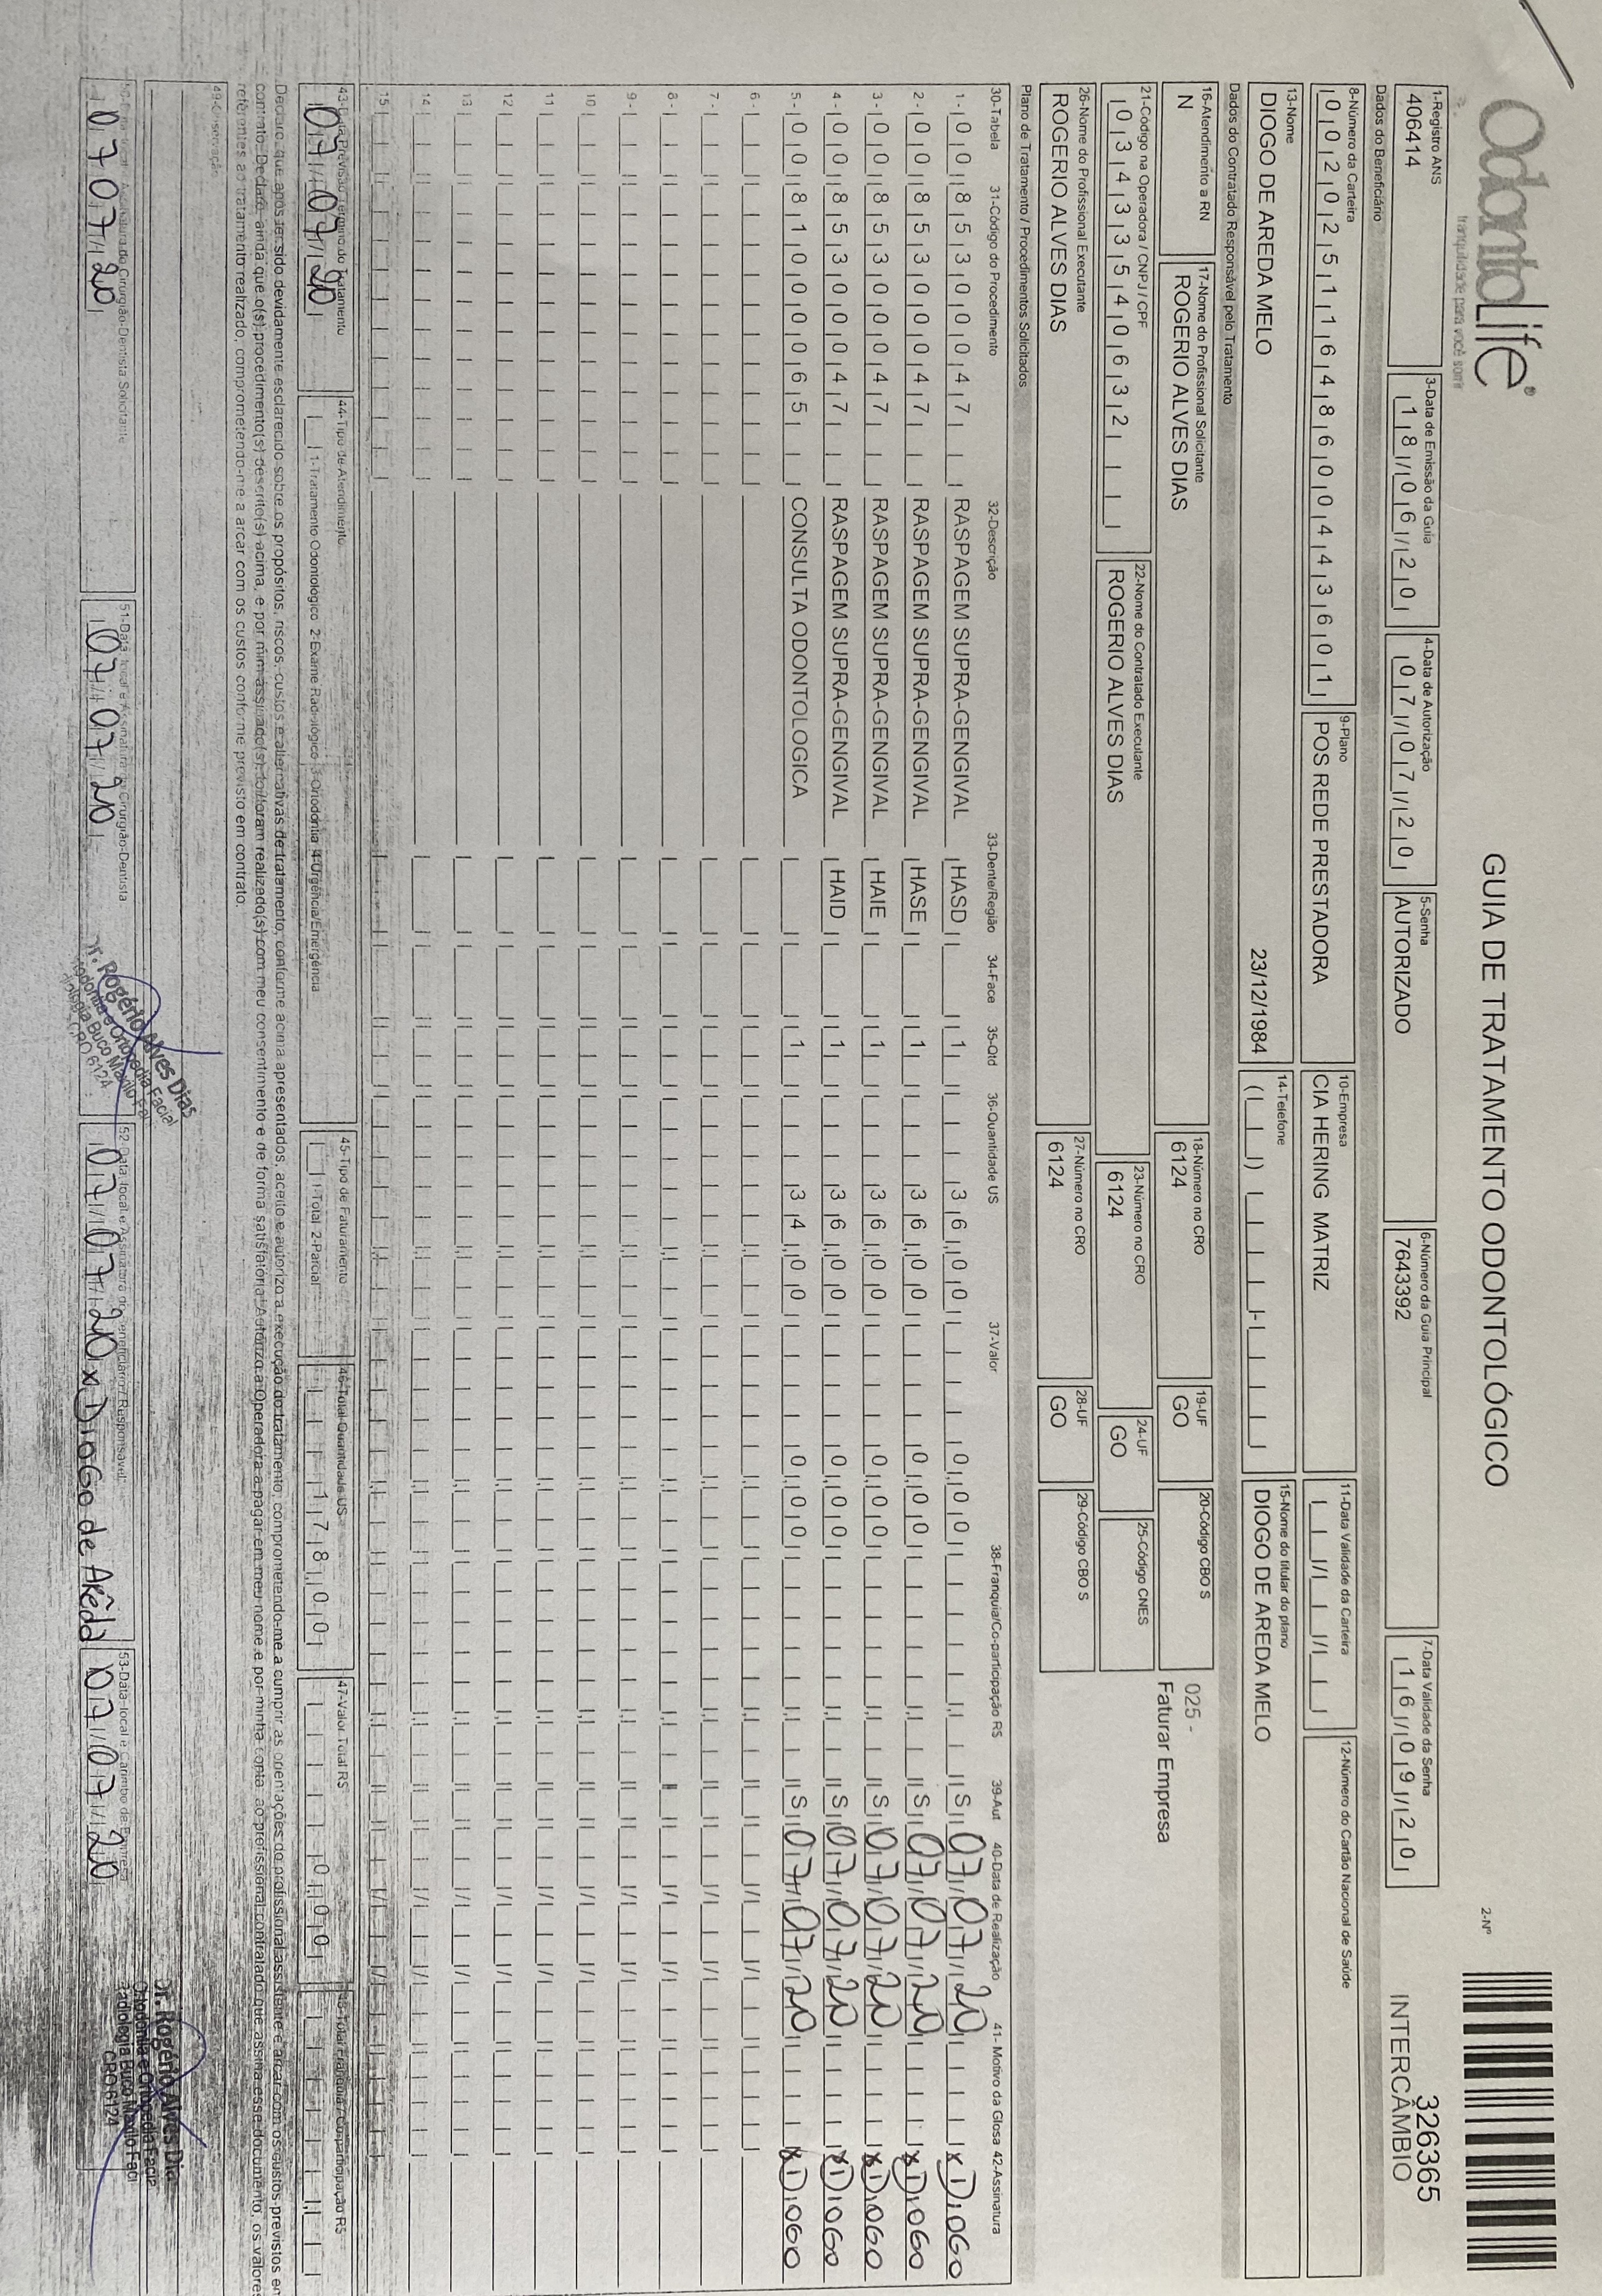 OdontoLife®
tranquilidade para você sorrir
GUIA DE TRATAMENTO ODONTOLÓGICO
2-Nº
326365
INTERCÂMBIO
1-Registro ANS
406414
3-Data de Emissão da Guia
18/06/20
4-Data de Autorização
07/07/20
5-Senha
AUTORIZADO
6-Número da Guia Principal
7643392
7-Data Validade da Senha
16/09/20
Dados do Beneficiário
8-Número da Carteira
00202511648600443601
9-Plano
POS REDE PRESTADORA
10-Empresa
CIA HERING MATRIZ
11-Data Validade da Carteira
12-Número do Cartão Nacional de Saúde
13-Nome
DIOGO DE AREDA MELO
23/12/1984
14-Telefone
15-Nome do titular do plano
DIOGO DE AREDA MELO
Dados do Contratado Responsável pelo Tratamento
16-Atendimento a RN
N
17-Nome do Profissional Solicitante
ROGERIO ALVES DIAS
18-Número no CRO
6124
19-UF
GO
20-Código CBO S
025 -
Faturar Empresa
21-Código na Operadora / CNPJ / CPF
03433540632
22-Nome do Contratado Executante
ROGERIO ALVES DIAS
23-Número no CRO
6124
24-UF
GO
25-Código CNES
26-Nome do Profissional Executante
ROGERIO ALVES DIAS
27-Número no CRO
6124
28-UF
GO
29-Código CBO S
Plano de Tratamento / Procedimentos Solicitados
30-Tabela 31-Código do Procedimento 32-Descrição 33-Dente/Região 34-Face 35-Qtd 36-Quantidade US 37-Valor 38-Franquia/Co-participação R$ 39-Aut 40-Data de Realização 41- Motivo da Glosa 42-Assinatura
1 - 00 85300047 RASPAGEM SUPRA-GENGIVAL HASD 1 36,00 0,00 S 07/07/20 x Diogo
2 - 00 85300047 RASPAGEM SUPRA-GENGIVAL HASE 1 36,00 0,00 S 07/07/20 x Diogo
3 - 00 85300047 RASPAGEM SUPRA-GENGIVAL HAIE 1 36,00 0,00 S 07/07/20 x Diogo
4 - 00 85300047 RASPAGEM SUPRA-GENGIVAL HAID 1 36,00 0,00 S 07/07/20 x Diogo
5 - 00 81000065 CONSULTA ODONTOLOGICA 1 34,00 0,00 S 07/07/20 x Diogo
6 -
7 -
8 -
9 -
10
11
12
13
14
15
43-Data Previsão Término do Tratamento
07/07/20
44-Tipo de Atendimento
1-Tratamento Odontológico 2-Exame Radiológico 3-Ortodontia 4-Urgência/Emergência
45-Tipo de Faturamento
1-Total 2-Parcial
46-Total Quantidade US
178,00
47-Valor Total R$
0,00
48-Total Franquia / Co-participação R$
Declaro, que após ter sido devidamente esclarecido sobre os propósitos, riscos, custos e alternativas de tratamento, conforme acima apresentados, aceito e autorizo a execução do tratamento, comprometendo-me a cumprir as orientações do profissional assistente e arcar com os custos previstos em
contrato. Declaro, ainda que o(s) procedimento(s) descrito(s) acima, e por mim assinado(s), foi/foram realizado(s) com meu consentimento e de forma satisfatória. Autorizo a Operadora a pagar em meu nome e por minha conta, ao profissional contratado que assina esse documento, os valores
referentes ao tratamento realizado, comprometendo-me a arcar com os custos conforme previsto em contrato.
49-Observação
Assinatura do Cirurgião-Dentista Solicitante
07/07/20
51-Data, local e Assinatura do Cirurgião-Dentista
07/07/20
Dr. Rogério Alves Dias
Ortodontia e Ortopedia Facial
Radiologia Buco Maxilo Facial
CRO 6124
52-Data, local e Assinatura do Beneficiário / Responsável
07/07/20 x Diogo de Arêda
53-Data, local e Carimbo da Empresa
07/07/20
Dr. Rogério Alves Dia
Ortodontia e Ortopedia Facia
Radiologia Buco Maxilo Faci
CRO 6124